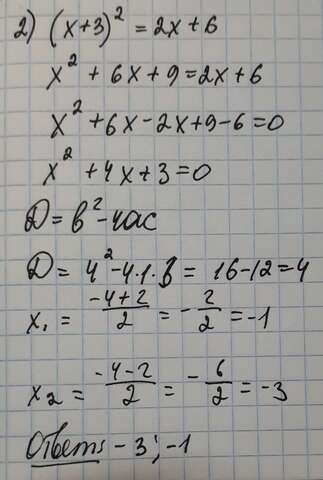 2) (x+3)² = 2x+6
x² + 6x+9=2x+6
x² +6x-2x+9-6=0
x² +4x+3=0
D=b²-4ac
D= 4²-4·1·3 = 16-12=4
x₁ = (-4+2)/2 = -2/2 = -1
x₂ = (-4-2)/2 = -6/2 = -3
Ответ: -3; -1